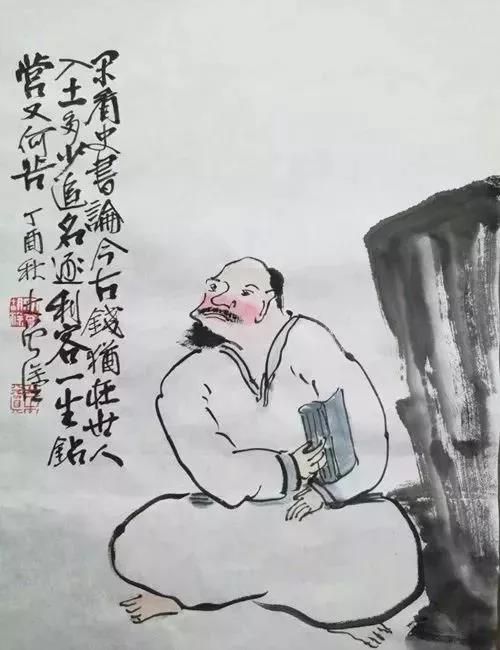 閑看史書論今古錢猶在世人
入土多少追名逐利客一生鉆
營又何苦 丁酉秋